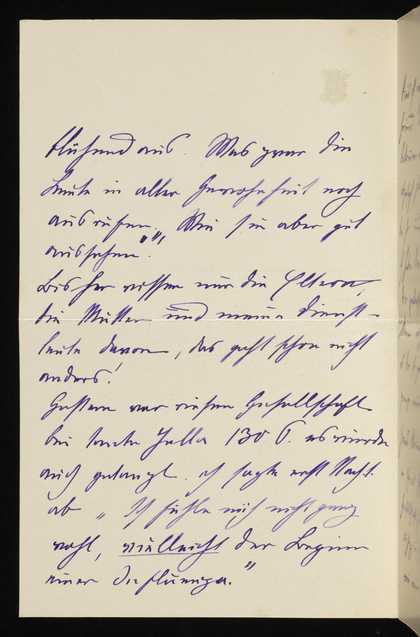 blühend aus. Was zwar die
Leute in alter Gewohnheit noch
ausrufen, „Wie sie aber gut
aussehen".
Bisher wissen nur die Eltern,
die Mutter und meine Dienst-
leute davon, das geht schon nicht
anders!
Gestern war riesen Gesellschaft
bei tante Jella 130 P. es wurde
auch getanzt. ich sagte erst Nachm.
ab „Ich fühle mich nicht ganz
wohl, vielleicht der Beginn
einer Influenza."